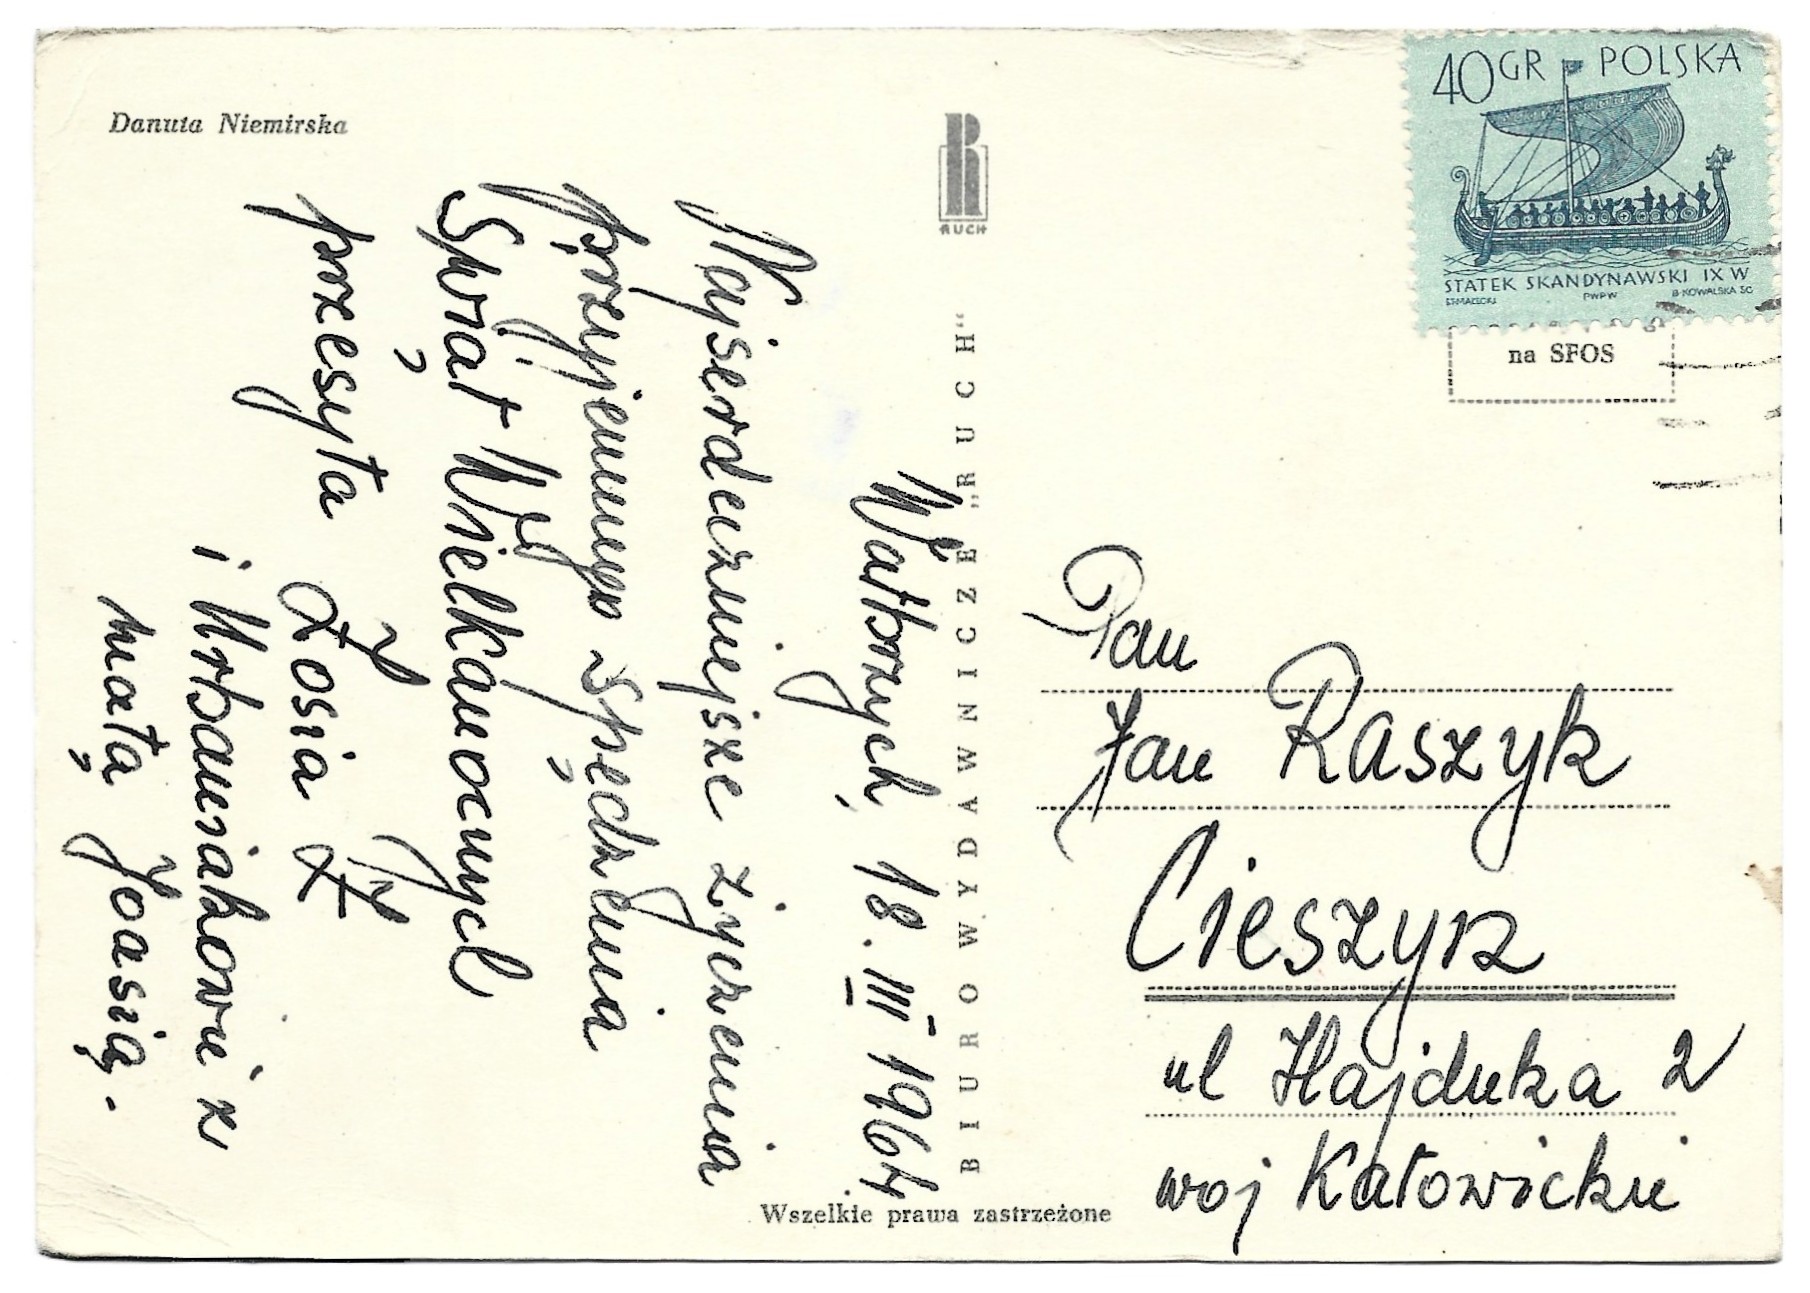 Danuta Niemirska
RUCH
40 GR POLSKA
STATEK SKANDYNAWSKI IX W
ST.MAŁECKI PWPW B.KOWALSKA SC
na SFOS
BIURO WYDAWNICZE „RUCH"
Wałbrzych, 18. III 1964
Najserdeczniejsze życzenia
przyjemnego spędzenia
Świąt Wielkanocnych
przesyła Zosia Z
i Urbaniakowie z
małą Joasią.
Pan
Jan Raszyk
Cieszyn
ul Hajduka 2
woj Katowickie
Wszelkie prawa zastrzeżone